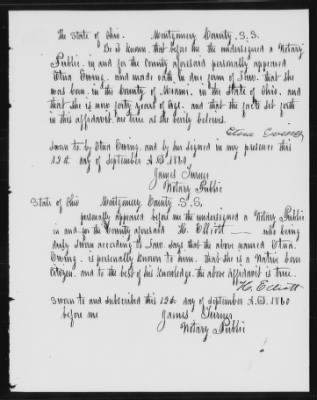 The State of Ohio - Montgomery County S.S.
Be it Known, that before me the undersigned a Notary
Public - in and for the County aforesaid personally appeared
Etna Ewing - and made oath in due form of Law - that she
was born - in the County of Miami, in the State of Ohio - and
that she is now forty years of Age - and that the facts set forth
in this affidavit are true as she verily believes.
Etna Ewing
sworn to by Etna Ewing, and by her signed in my presence this
12th day of September A.D. 1860
James Turner
Notary Public
State of Ohio Montgomery County S.S.
personally appeared before me the undersigned a Notary Public
in and for the County aforesaid H. Elliott who being
duly sworn according to Law, says that the above named Etna
Ewing - is personally known to him - that she is a Native born
Citizen, and to the best of his Knowledge, the above Affidavit is true.
H. Elliott
sworn to and subscribed this 12th day of September A.D. 1860
before me James Turner
Notary Public